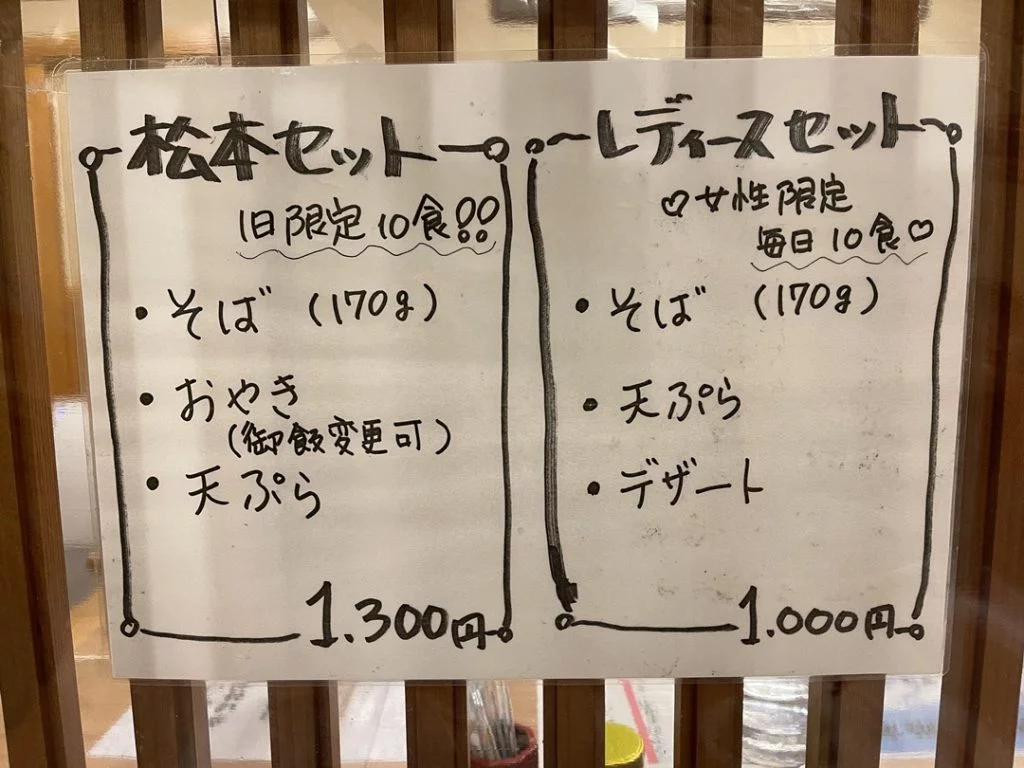 松本セット
1日限定10食!!
・そば (170g)
・おやき
(御飯変更可)
・天ぷら
1.300円
レディースセット
♡女性限定
毎日10食♡
・そば (170g)
・天ぷら
・デザート
1.000円